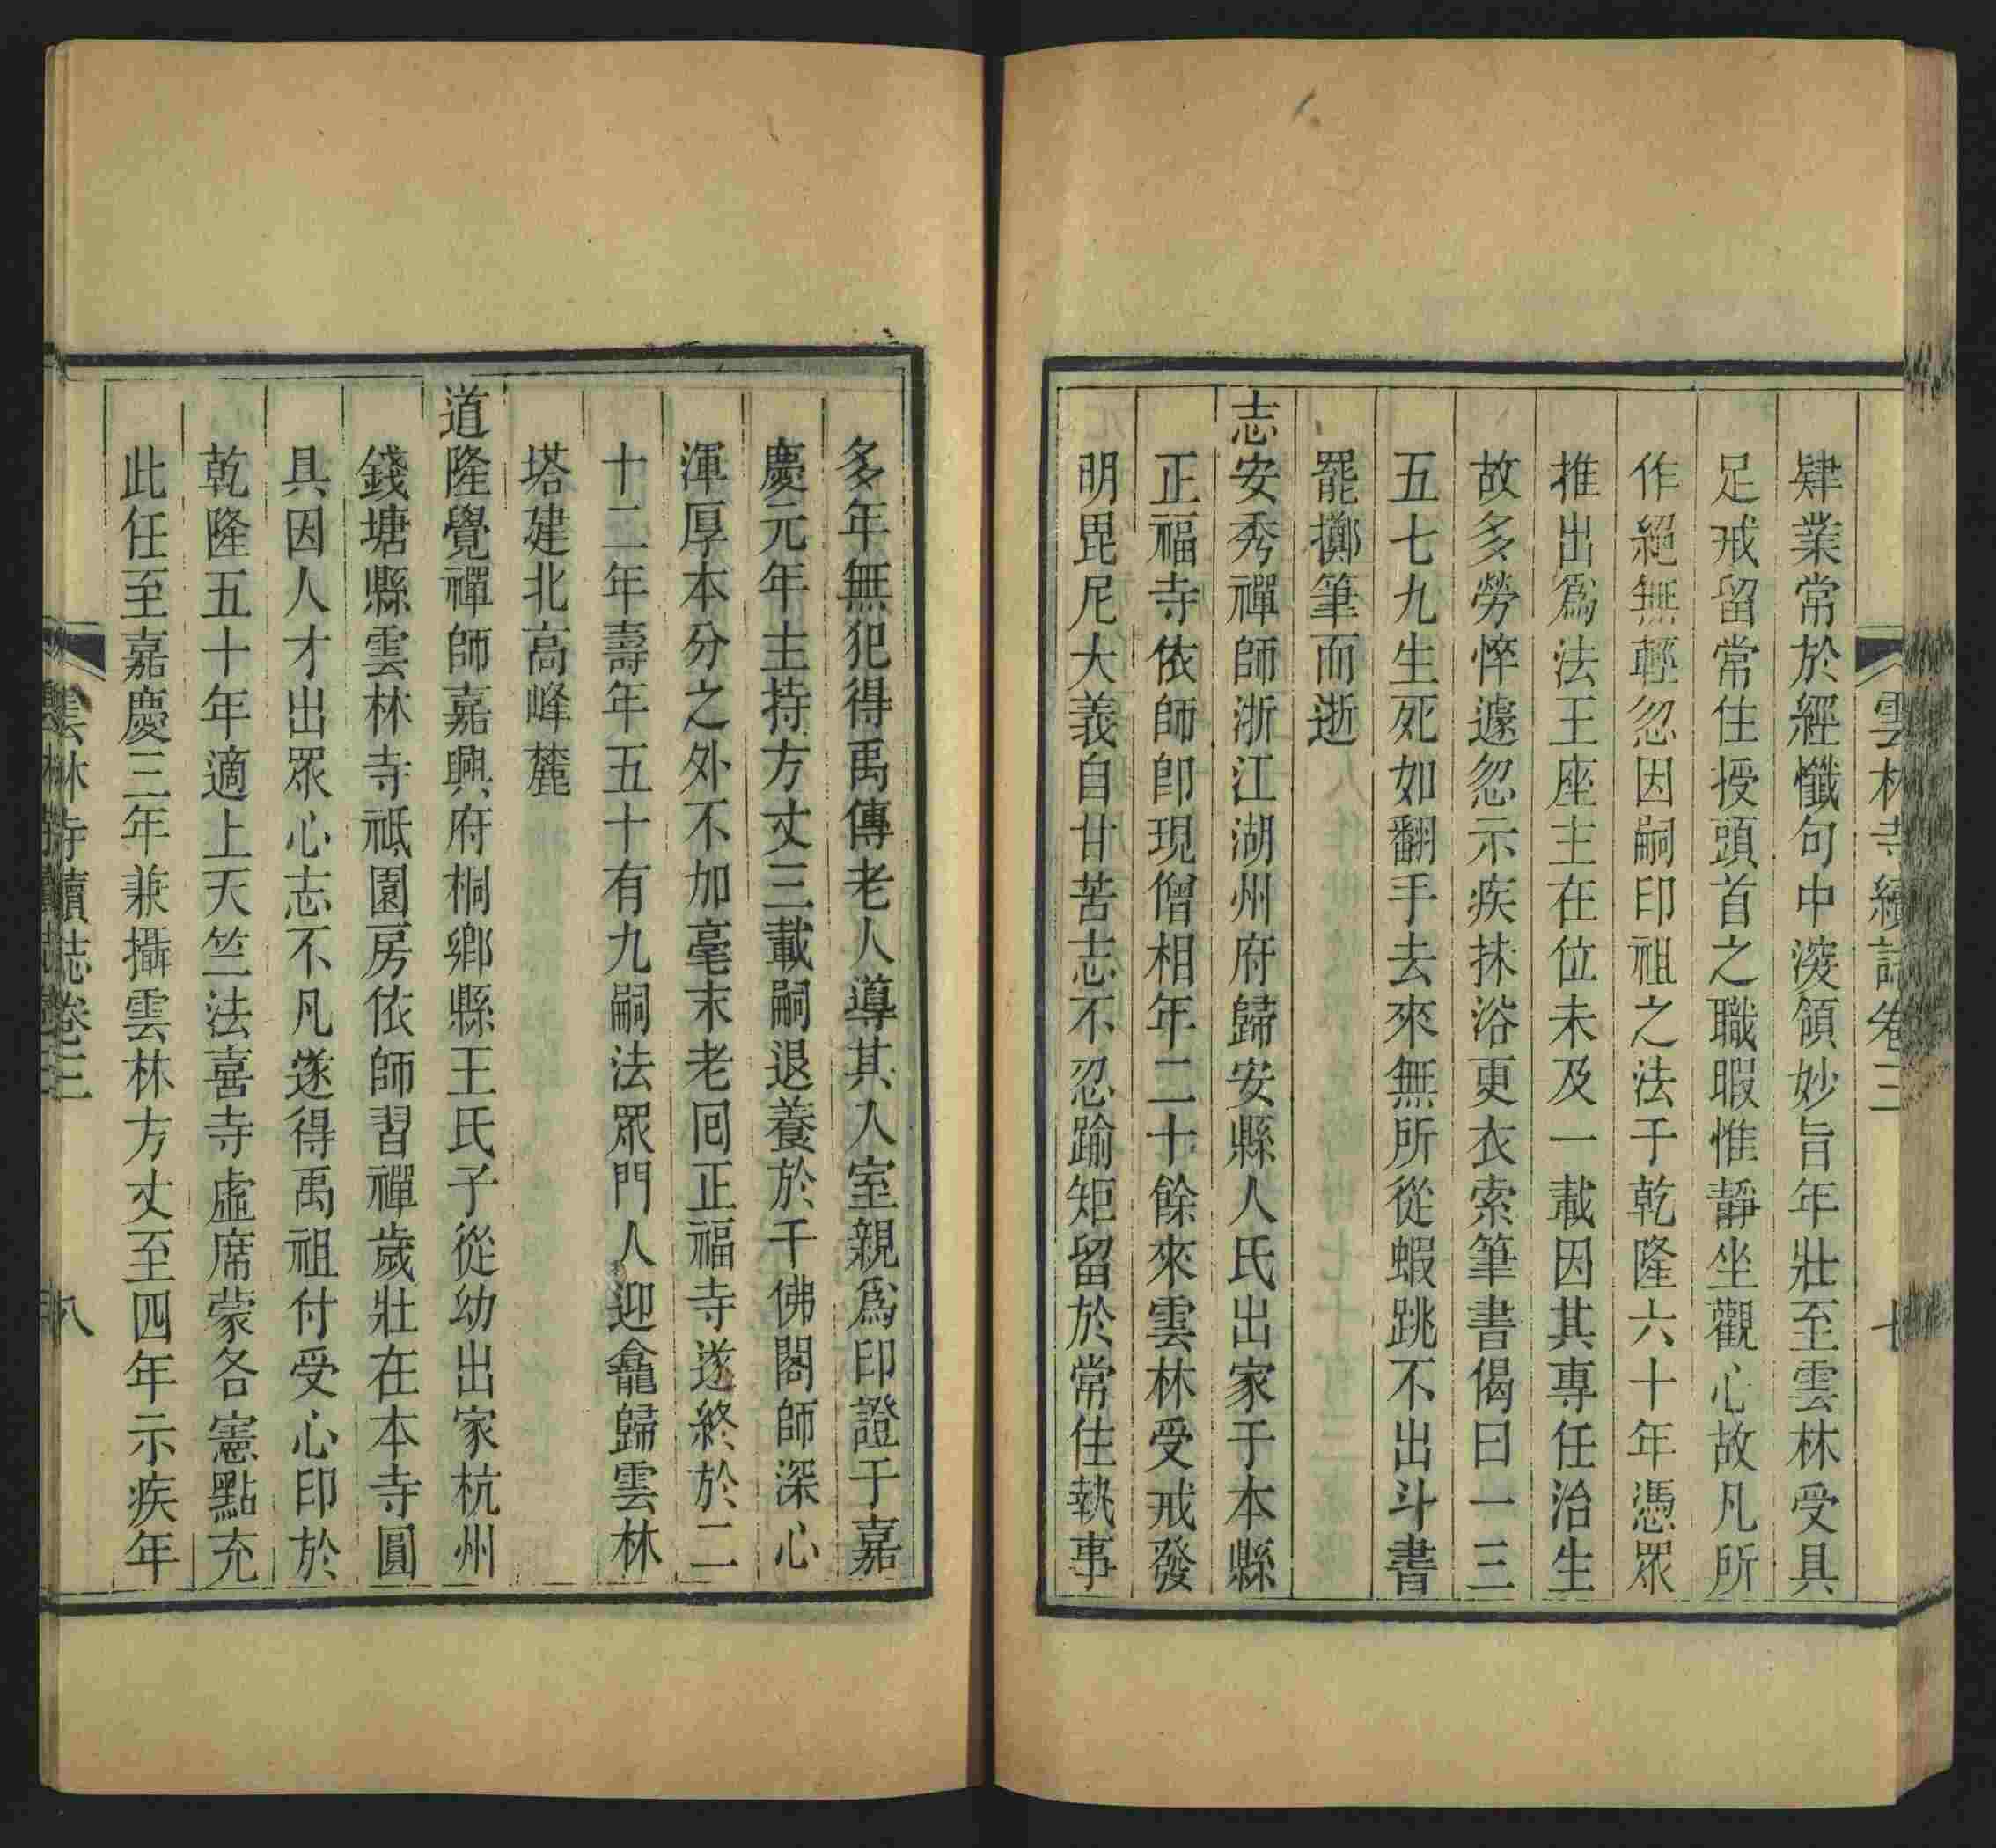 雲林寺續誌卷三 七
肄業常於經懺句中深領妙旨年壯至雲林受具
足戒留常住授頭首之職暇惟靜坐觀心故凡所
作絕無輕忽因嗣印祖之法于乾隆六十年憑眾
推出爲法王座主在位未及一載因其專任治生
故多勞悴遽忽示疾抹浴更衣索筆書偈曰一三
五七九生死如翻手去來無所從蝦跳不出斗書
罷擲筆而逝
志安秀禪師浙江湖州府歸安縣人氏出家于本縣
正福寺依師卽現僧相年二十餘來雲林受戒發
明毘尼大義自甘苦志不忍踰矩留於常住執事
多年無犯得禹傳老人導其入室親爲印證于嘉
慶元年主持方丈三載嗣退養於千佛閣師深心
渾厚本分之外不加毫末老囘正福寺遂終於二
十二年壽年五十有九嗣法眾門人迎龕歸雲林
塔建北高峰麓
道隆覺禪師嘉興府桐鄉縣王氏子從幼出家杭州
錢塘縣雲林寺祗園房依師習禪歲壯在本寺圓
具因人才出眾心志不凡遂得禹祖付受心印於
乾隆五十年適上天竺法喜寺虛席蒙各憲點充
此任至嘉慶三年兼攝雲林方丈至四年示疾年
雲林寺續誌卷三 八